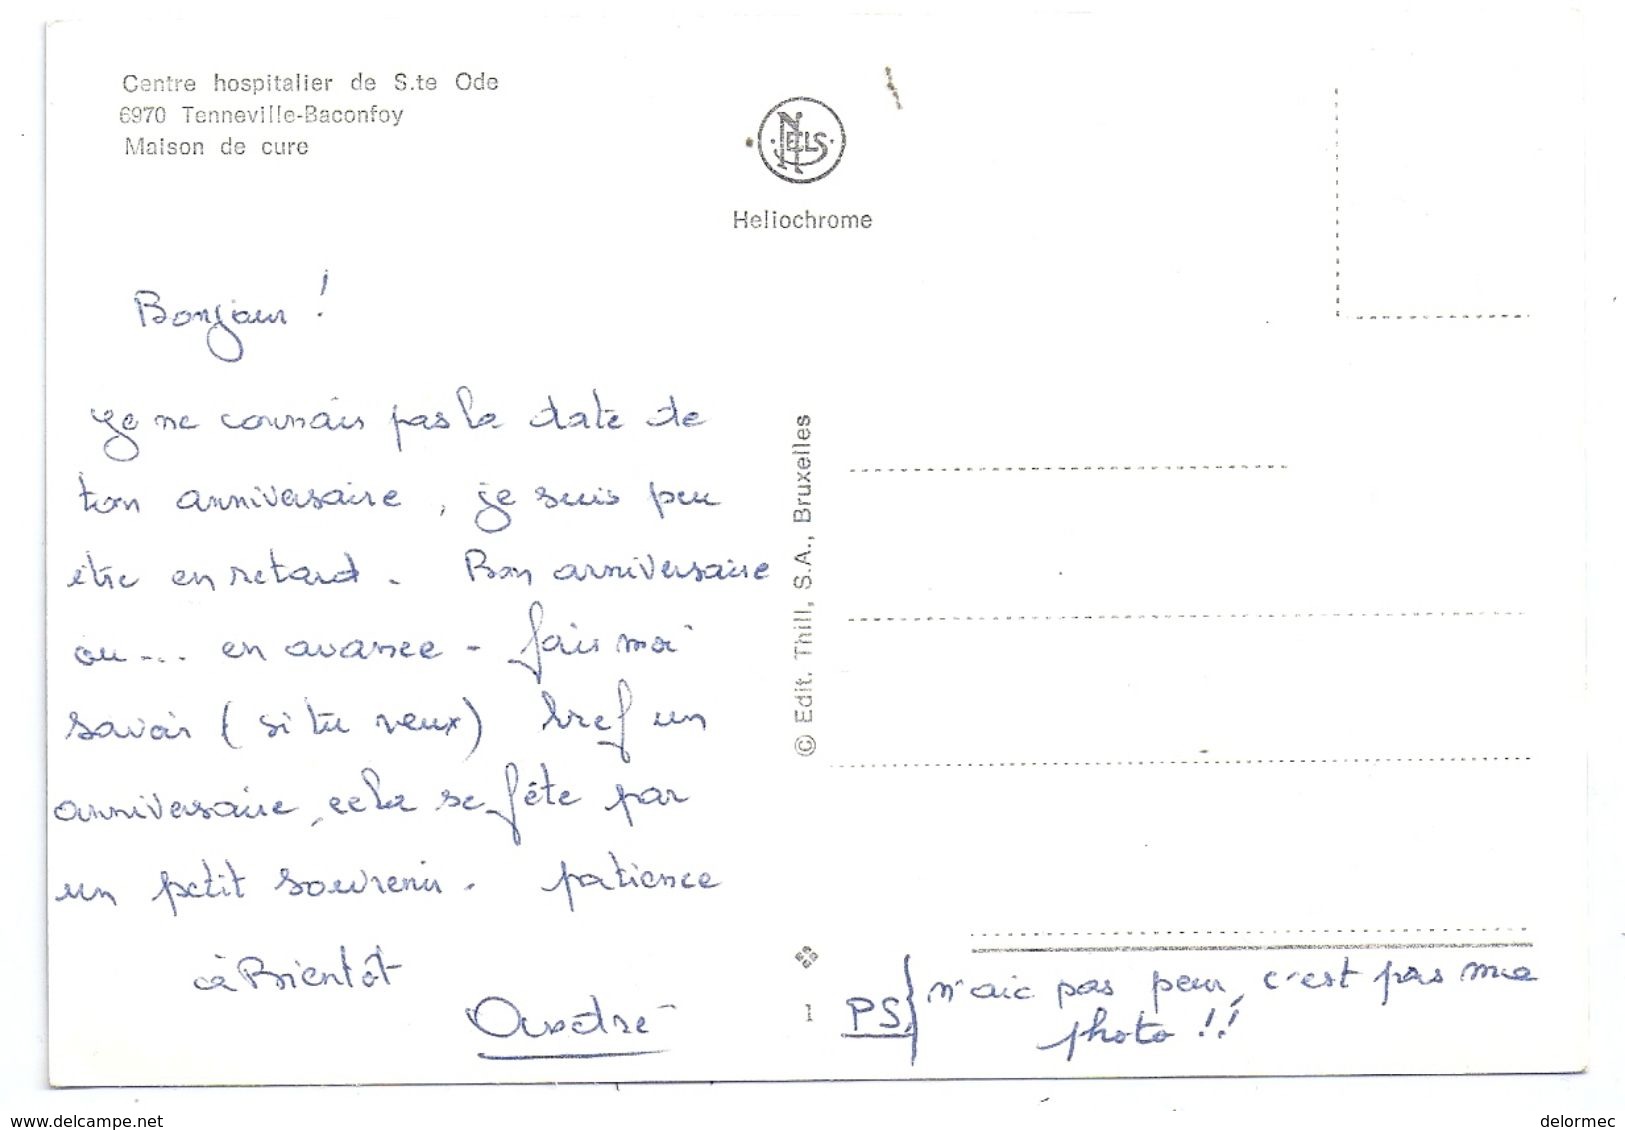 Centre hospitalier de S.te Ode
6970 Tenneville-Baconfoy
Maison de cure
NELS
Heliochrome
Bonjour !
Je ne connais pas la date de
ton anniversaire, je suis peu
être en retard. Bon anniversaire
ou ... en avance - fais moi
savoir (si tu veux) bref un
anniversaire, cela se fête par
un petit souvenir. patience
à Bientôt
© Edit. Thill, S.A., Bruxelles
1
PS, n'aie pas peur, c'est pas ma
photo !!
www.delcampe.net
delormec